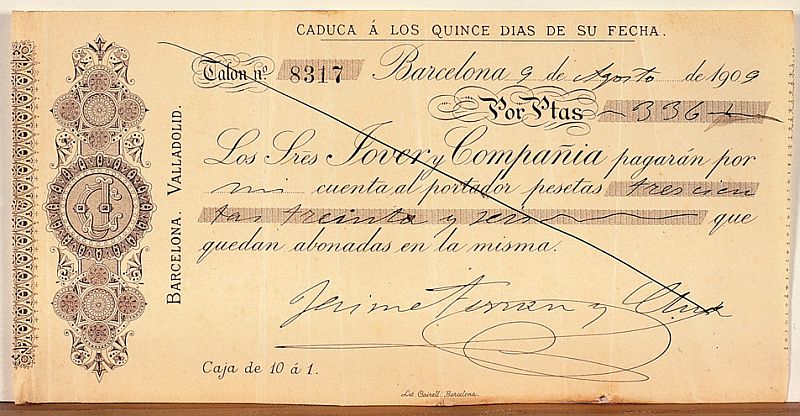 CADUCA Á LOS QUINCE DIAS DE SU FECHA.
Talon nº 8317 Barcelona 9 de Agosto de 1909
Por Ptas 336
Los Sres Jover y Compañia pagarán por
mi cuenta al portador pesetas trescien
tas treinta y seis que
quedan abonadas en la misma.
Jaime Ferran y Clua
Caja de 10 á 1.
Lit Cairell, Barcelona.
BARCELONA. VALLADOLID.